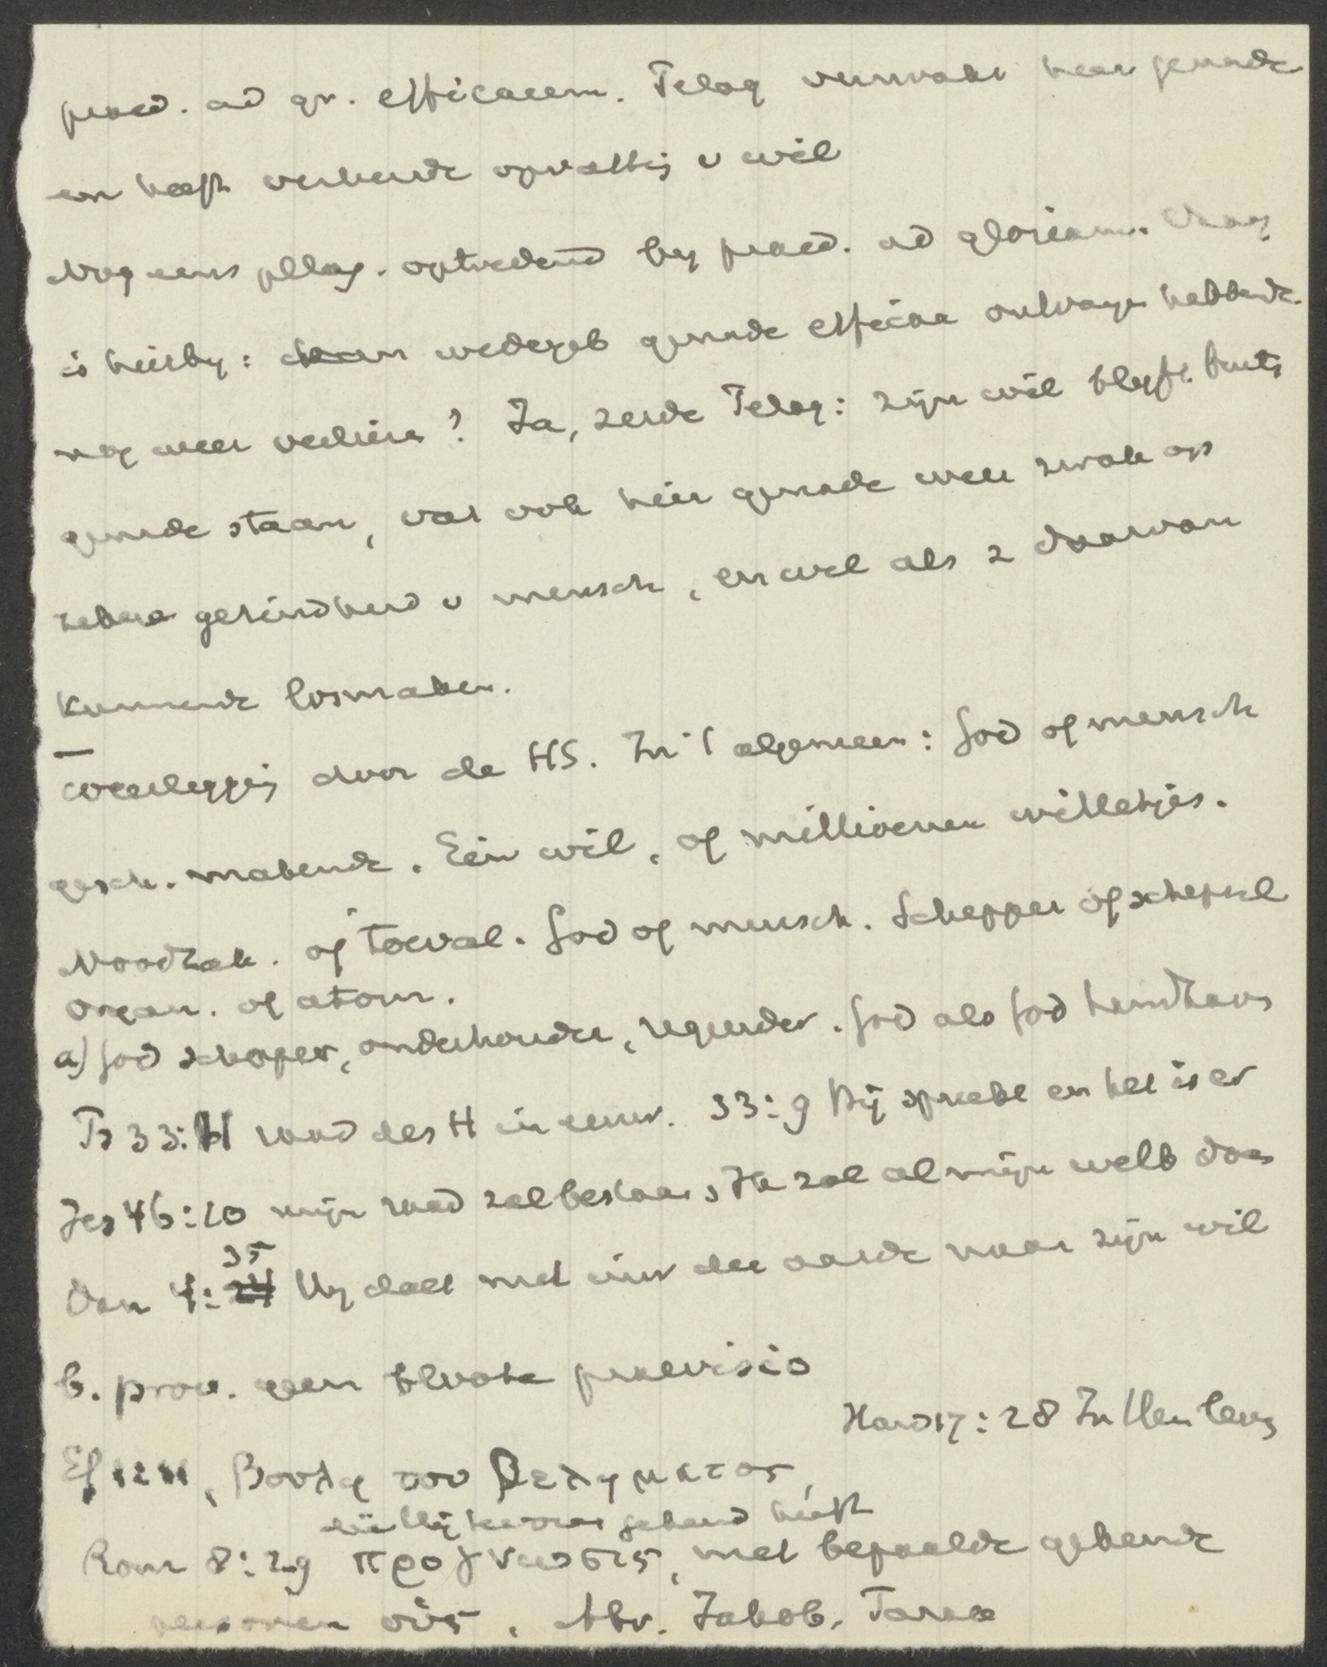 praed. ad gr. efficacem. Pelag verwaarl haar genade
en heeft verkeerde opvattig v wil
Nog eens pelag. optredend by praed. ad gloriam. Vraag
is hierby: wedergeb genade efficax ontvangen hebbende
nog weer verliezen? Ja, zeide Pelag: zijn wil blyft buiten
genade staan, vat ook hier genade weer zwak op
zekere gezindheid v mensch, en wel als z daarvan
kunnende losmaken.
Weerleggig door de HS. In 't algemeen: God of mensch
gesch. makende. Eén wil, of millioenen willetjes.
Noodzak. of toeval. God of mensch. Schepper of schepsel
Organ. of atom.
a) God schepper, onderhouder, regeerder. God als God handhaven
Ps 33:11 raad des H in eeuw. 33:9 Hij spreekt en het is er
Jes 46:10 mijn raad zal bestaan, Ik zal al mijn welb doen
Dan 4:35 Hy doet met inw der aarde naar zijn wil
b. prov. geen bloote praevisio
Hand 17:28 In Hem leven
Ef 1:11, βουλη του θεληματος,
die Hij te voren gekend heeft
Rom 8:29 προγνωσις, met bepaalde gekende
personen οὑς, Abr. Jakob.